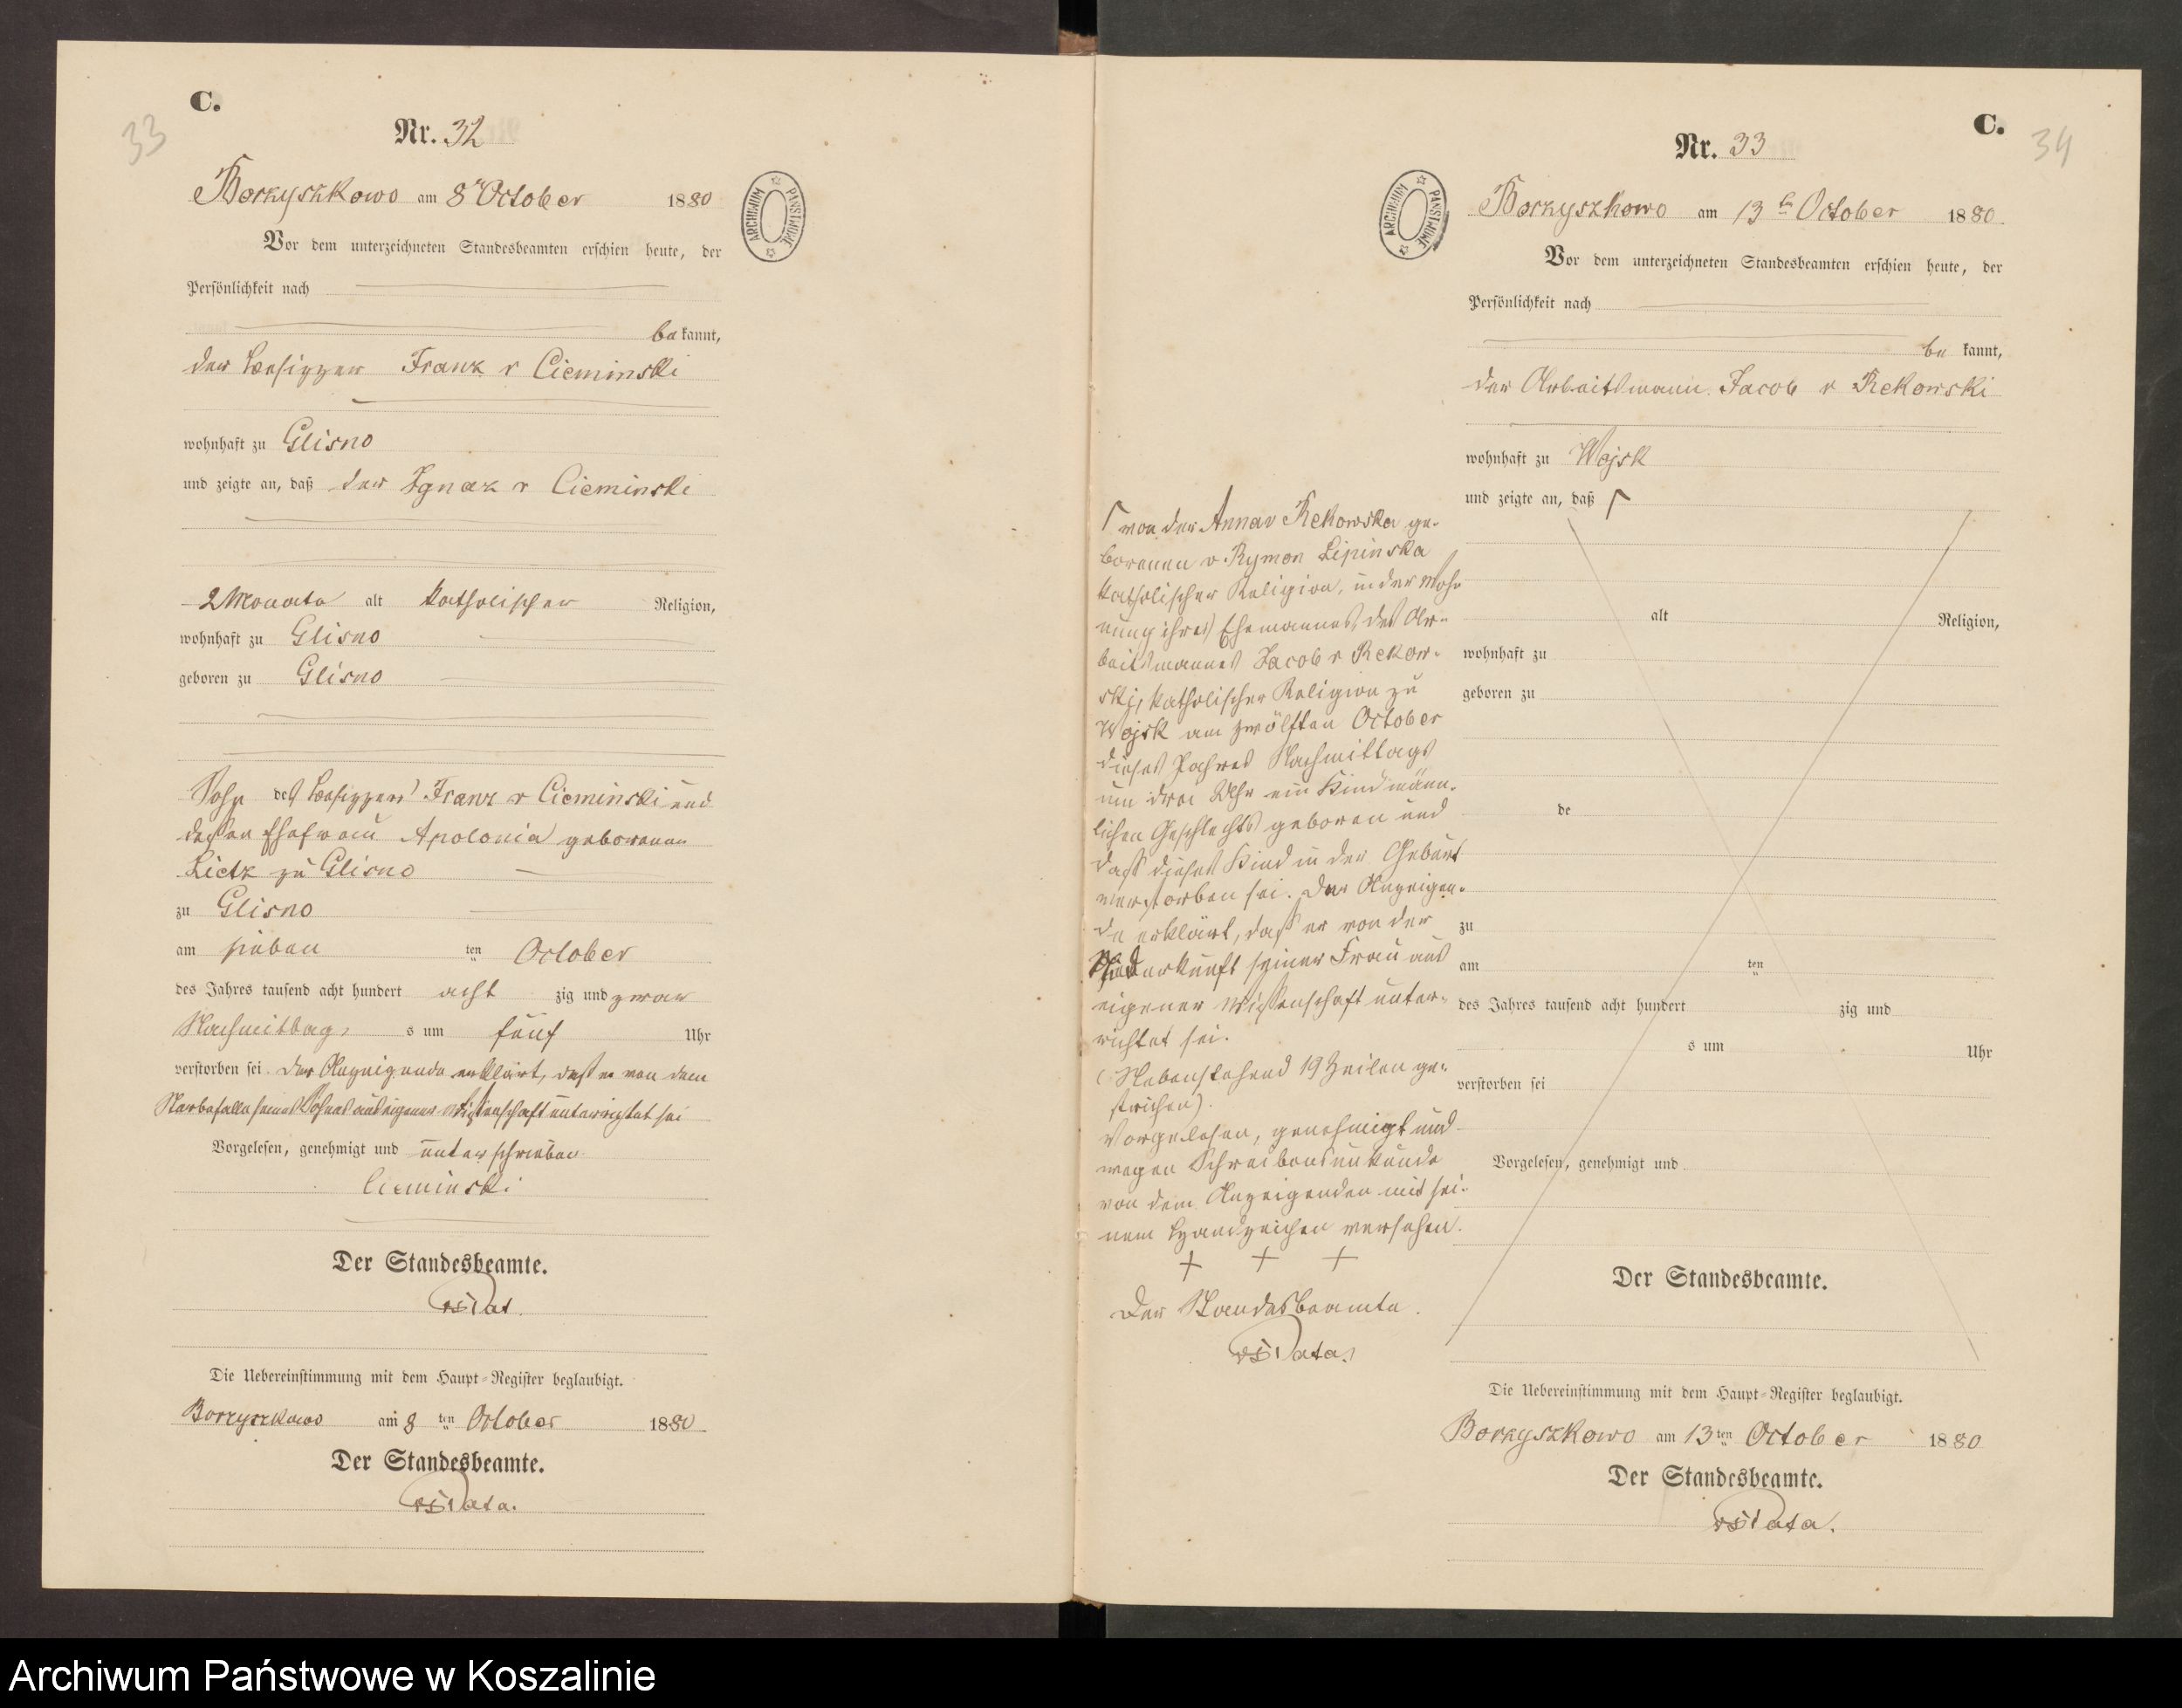 C.
33
Nr. 32
Borzyszkowo am 8 October 1880
Vor dem unterzeichneten Standesbeamten erschien heute, der
Persönlichkeit nach
bekannt,
der Besitzer Franz v Cieminski
wohnhaft zu Glisno
und zeigte an, daß der Ignaz v Cieminski
2 Monate alt katholischer Religion,
wohnhaft zu Glisno
geboren zu Glisno
Sohn des Besitzers Franz v Cieminski und
dessen Ehefrau Apolonia geborenen
Lietz zu Glisno
zu Glisno
am sieben ten October
des Jahres tausend acht hundert acht zig und zwar
Nachmittag s um fünf Uhr
verstorben sei. Der Anzeigende erklärt, daß er von dem
Sterbefalle seines Sohnes aus eigener Wissenschaft unterrichtet sei
Vorgelesen, genehmigt und unterschrieben
Cieminski
Der Standesbeamte.
Die Uebereinstimmung mit dem Haupt-Register beglaubigt.
Borzyszkowo am 8 ten October 1880
Der Standesbeamte.
ARCHIWUM PAŃSTWOWE
C.
34
Nr. 33
Borzyszkowo am 13 October 1880.
Vor dem unterzeichneten Standesbeamten erschien heute, der
Persönlichkeit nach
be kannt,
der Arbeitsmann Jacob v Rekowski
wohnhaft zu Wojsk
und zeigte an, daß
alt Religion,
wohnhaft zu
geboren zu
de
zu
am ten
des Jahres tausend acht hundert zig und
s um Uhr
verstorben sei
Vorgelesen, genehmigt und
Der Standesbeamte.
von der Anna v Rekowska ge-
borenen v Rymon Lipinska
katholischer Religion, in der Woh
nung ihres Ehemannes, des Ar-
beitsmannes Jacob v Rekow-
ski, katholischer Religion zu
Wojsk am zwölften October
dieses Jahres Nachmittags
um drei Uhr ein Kind männ-
lichen Geschlechts geboren und
daß dieses Kind in der Geburt
verstorben sei. Der Anzeigen-
de erklärt, daß er von der
Niederkunft seiner Frau aus
eigener Wissenschaft unter-
richtet sei.
(Nebenstehend 19 Zeilen ge-
strichen).
Vorgelesen, genehmigt und
wegen Schreibensunkunde
von dem Anzeigenden mit sei-
nem Handzeichen versehen.
+ + +
Der Standesbeamte.
Die Uebereinstimmung mit dem Haupt-Register beglaubigt.
Borzyszkowo am 13 ten October 1880
Der Standesbeamte.
ARCHIWUM PAŃSTWOWE
Archiwum Państwowe w Koszalinie